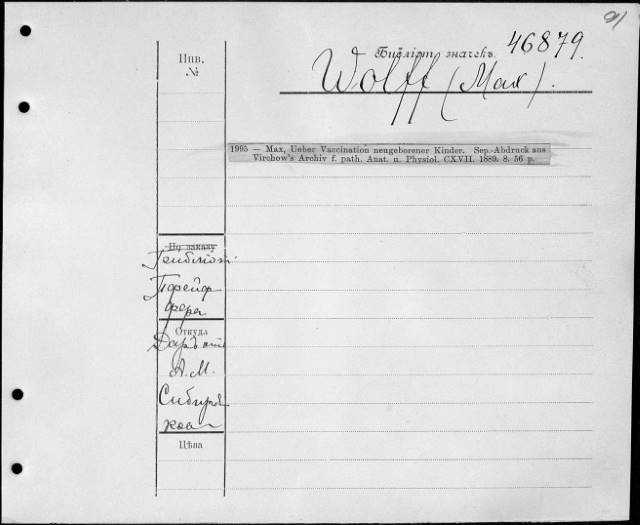 91
Инв.
№
Библіот. значекъ.
46879.
Wolff (Max).
1995 — Max, Ueber Vaccination neugeborener Kinder. Sep.-Abdruck aus
Virchow's Archiv f. path. Anat. u. Physiol. CXVII. 1889. 8. 56 p.
По заказу
Пфейф
фера
Откуда
Даръ отъ
А. М.
Сибиряк
кова
Цѣна